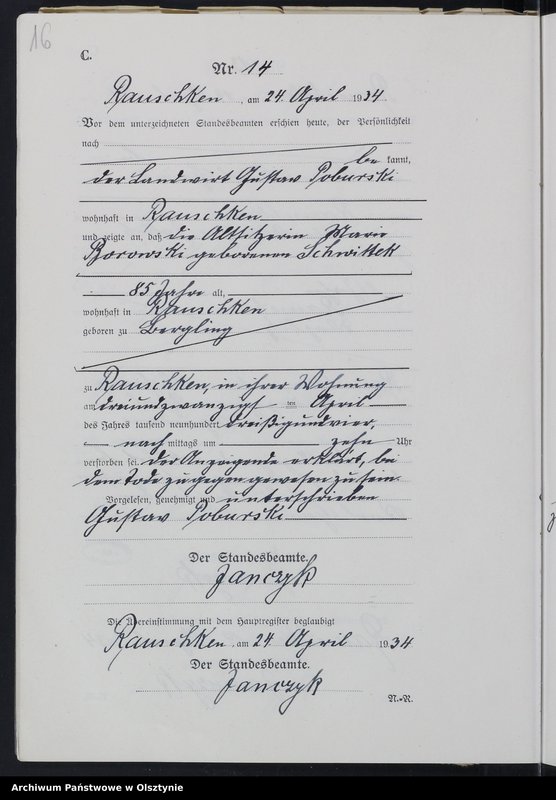 16
C.
Nr. 14
Rauschken, am 24. April 1934.
Vor dem unterzeichneten Standesbeamten erschien heute, der Persönlichkeit
nach
be kannt,
der Landwirt Gustav Poburski
wohnhaft in Rauschken
und zeigte an, daß die Altsitzerin Marie
Borowski geborenen Schwittek
85 Jahre alt,
wohnhaft in Rauschken
geboren zu Bergling
zu Rauschken, in ihrer Wohnung
am dreiundzwanzigsten April
des Jahres tausend neunhundert dreißigundvier,
nach mittags um zehn Uhr
verstorben sei. Der Anzeigende erklärt, bei
dem Tode zugegen gewesen zu sein.
Vorgelesen, genehmigt und unterschrieben
Gustav Poburski
Der Standesbeamte.
Janczyk
Die Übereinstimmung mit dem Hauptregister beglaubigt
Rauschken, am 24. April 1934
Der Standesbeamte.
Janczyk
N.-N.
Archiwum Państwowe w Olsztynie